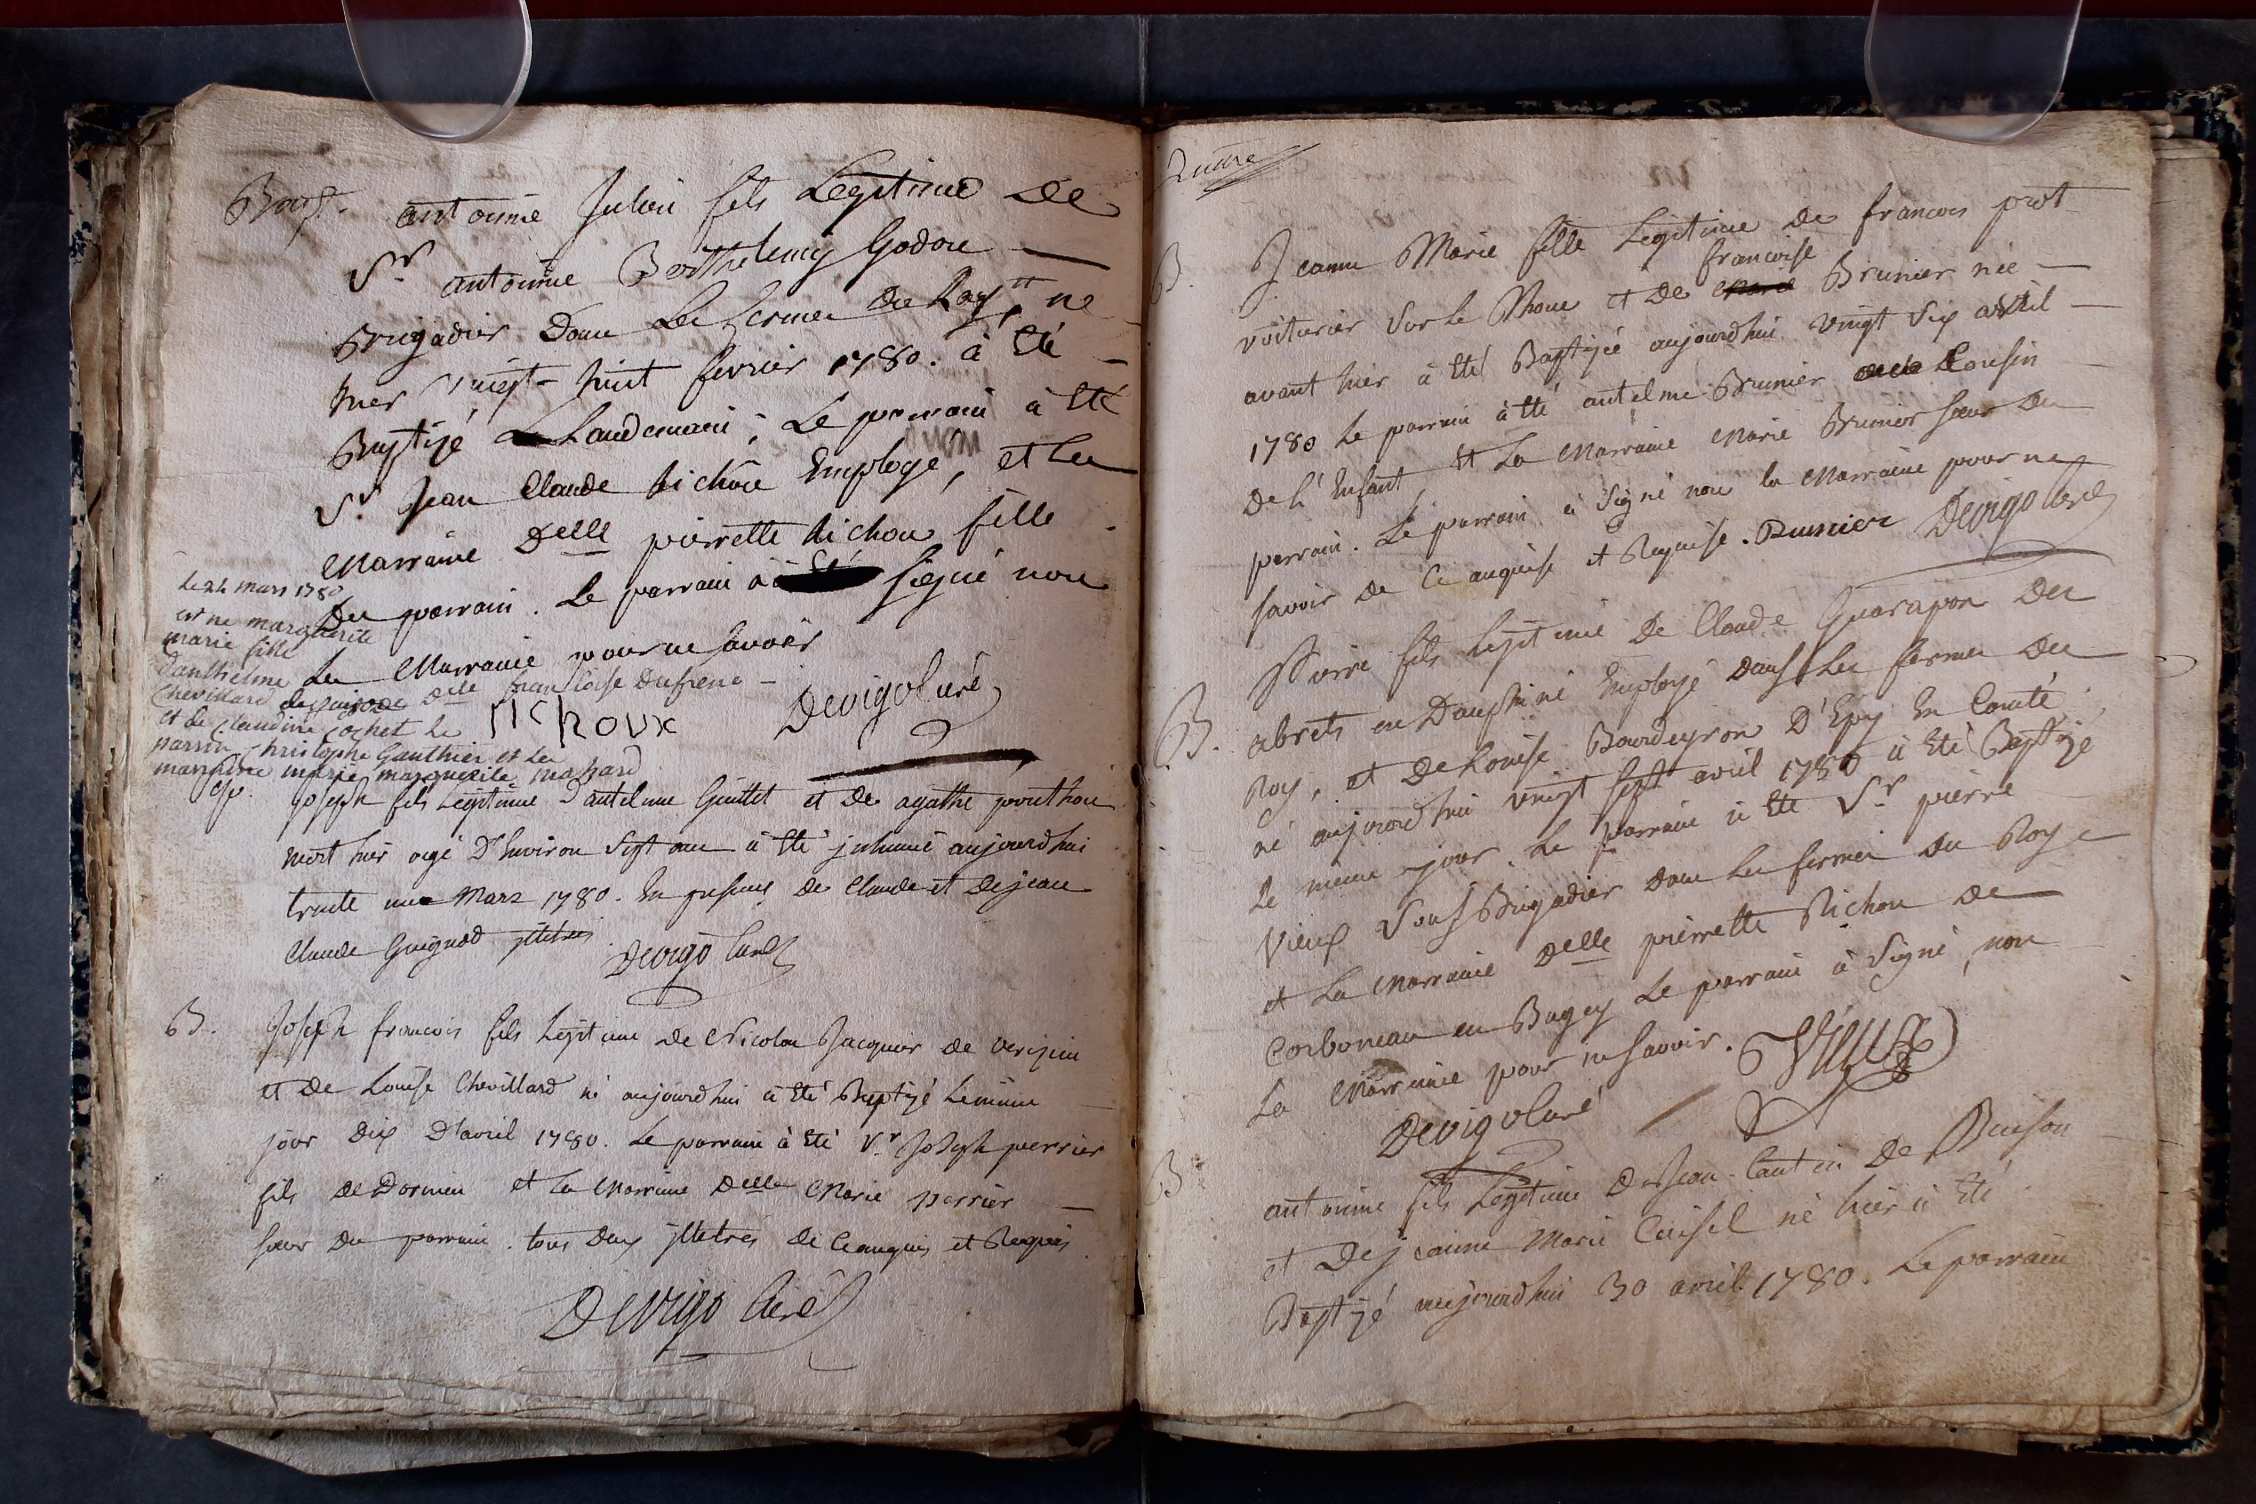 Bapt. antoinne Julien fils Legitime De
Sr. antoinne Berthelemy Godon
Brigadier Dans Les fermes du Roy, ne
hier vingt-huit fevrier 1780. à Eté
Baptizé Landemain; Le parrain à Eté
Sr. Jean Claude Richou Employé, et La
Marraine Delle pierrette Richou fille
Du parrain. Le parrain à signé non
La Marraine pour ne savoir
françoise Dufrene
richoux Devigo Curé
Le 24 mars 1780
est ne marguerite
marie fille
Danthelme
Chevillard
et de Claudine cochet le
parrin christophe Gauthier et La
marraine marie marguerite massard
Joseph fils Legitime D'antelme Guittet et de agathe pouthon
mort hier agé D'Environ Sept ans à Eté inhumé aujourdhui
trente une Mars 1780. En presence de Claude et De jean
Claude Guignod illetrés. Devigo Curé
B. Joseph francois fils Legitime de Nicolas Jacquier de verizieu
et de Louise Chevillard né aujourdhui à Eté Baptizé Le même
jour Dix D'avril 1780. Le parrain à Eté Sr. Joseph perrier
fils de Dornieu et La Marraine Delle Marie perrier
sœur du parrain. tous Deux illetrés de ce anquis et Requis
Devigo Curé
quatre
B. Jeanne Marie fille Legitime De francois prot
françoise
voiturier Sur Le Rhone et De Brunier née
avant hier à Eté Baptizée aujourdhui vingt Six avril
1780 Le parrain à Eté antelme Brunier Cousin
de L'Enfant, Et La Marraine Marie Brunier sœur Du
parrain. Le parrain à Signé non la Marraine pour ne
savoir de Ce anquise et Requise. Brunier Devigo Curé
B. Pierre fils Legitime De Claude Guarapon Des
abrets en Dauphiné Employé Dans Les fermes Du
Roy, et De Louise Bourdeyron D'Epy En Comté
né aujourdhui vingt sept avril 1780 à Eté Baptizé
Le meme jour. Le parrain à Eté Sr. pierre
Vieux Sous Brigadier Dans Les fermes du Roy
et La Marraine Delle pierrette Richou de
Corboneau en Bugey Le parrain à Signé, non
La Marraine pour ne savoir. Vieux
Devigo Curé
B. antoinne fils Legitime De Jean Cautin De Buison
et De jeanne Marie Cuisel né hier à Eté
Baptizé aujourdhui 30 avril 1780. Le parrain